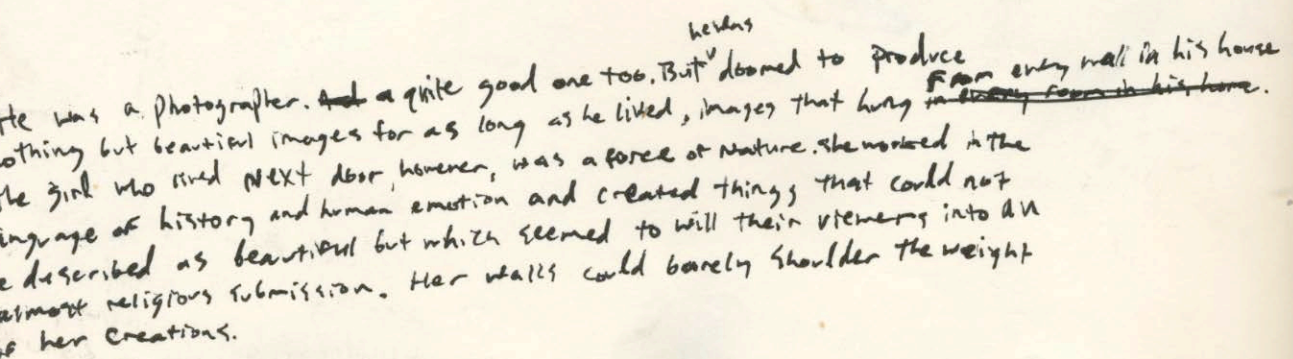 he was
He was a photographer. And a quite good one too. But doomed to produce
From every wall in his house
nothing but beautiful images for as long as he lived, images that hung in every room in his home.
The girl who lived next door, however, was a force of nature. She worked in the
language of history and human emotion and created things that could not
be described as beautiful but which seemed to will their viewers into an
almost religious submission. Her walls could barely shoulder the weight
of her creations.